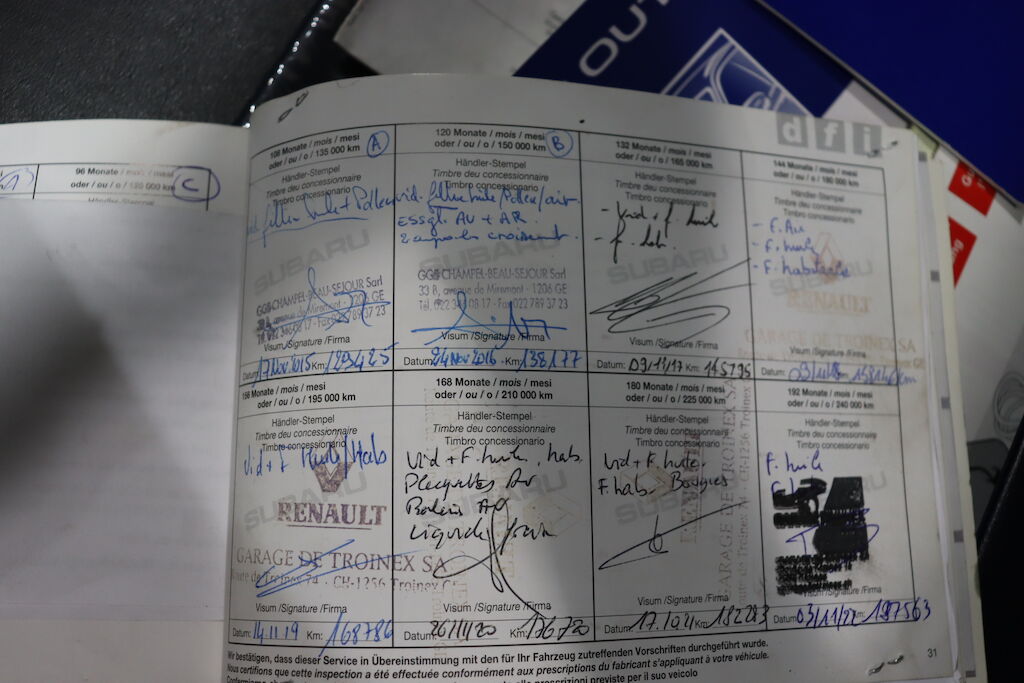 OUT
dfi
C
96 Monate / mois / mesi
oder / ou / o / 120 000 km
108 Monate / mois / mesi
oder / ou / o / 135 000 km
A
Händler-Stempel
Timbre du concessionnaire
Timbro concessionario
filtre huile + Pollen
SUBARU
GGB CHAMPEL-BEAU-SEJOUR Sarl
33 B, avenue de Miremont - 1206 GE
Visum /Signature /Firma
Datum: 17 Nov. 2015 Km: 129425
120 Monate / mois / mesi
oder / ou / o / 150 000 km
B
Händler-Stempel
Timbre du concessionnaire
Timbro concessionario
vid. filtre huile/Pollen/air
ESSgl. AV + AR.
2 ampoules croisement.
SUBARU
GGB CHAMPEL-BEAU-SEJOUR Sarl
33 B, avenue de Miremont - 1206 GE
Visum /Signature /Firma
Datum: 24 Nov 2016 Km: 138177
132 Monate / mois / mesi
oder / ou / o / 165 000 km
Händler-Stempel
Timbre du concessionnaire
Timbro concessionario
- Vid + f. huile
- f. hab.
SUBARU
Visum /Signature /Firma
Datum: 09/11/17 Km: 145795
144 Monate / mois / mesi
oder / ou / o / 180 000 km
Händler-Stempel
Timbre du concessionnaire
Timbro concessionario
- F. Air
- F. huile
- F. habitacle
RENAULT
GARAGE DE TROINEX SA
Visum /Signature /Firma
Datum:
156 Monate / mois / mesi
oder / ou / o / 195 000 km
Händler-Stempel
Timbre du concessionnaire
Timbro concessionario
Vid + F Huile/Hab
RENAULT
GARAGE DE TROINEX SA
Route de Troinex 74 - CH-1256 Troinex
Visum /Signature /Firma
Datum: 14.11.19 Km: 168786
168 Monate / mois / mesi
oder / ou / o / 210 000 km
Händler-Stempel
Timbre du concessionnaire
Timbro concessionario
Vid + F. huile, hab.
Plaquettes Av
Balais AV
Liquide frein
SUBARU
Visum /Signature /Firma
Datum: 26/11/20 Km:
180 Monate / mois / mesi
oder / ou / o / 225 000 km
Händler-Stempel
Timbre du concessionnaire
Timbro concessionario
Vid + F. huile.
F. hab. Bougies
SUBARU
RENAULT
GARAGE DE TROINEX SA
Visum /Signature /Firma
Datum: Km: 182283
192 Monate / mois / mesi
oder / ou / o / 240 000 km
Händler-Stempel
Timbre du concessionnaire
Timbro concessionario
F. huile
Visum /Signature /Firma
Datum: 03/11/22 197563
Wir bestätigen, dass dieser Service in Übereinstimmung mit den für Ihr Fahrzeug zutreffenden Vorschriften durchgeführt wurde.
Nous certifions que cette inspection a été effectuée conformément aux prescriptions du fabricant s'appliquant à votre véhicule.
31